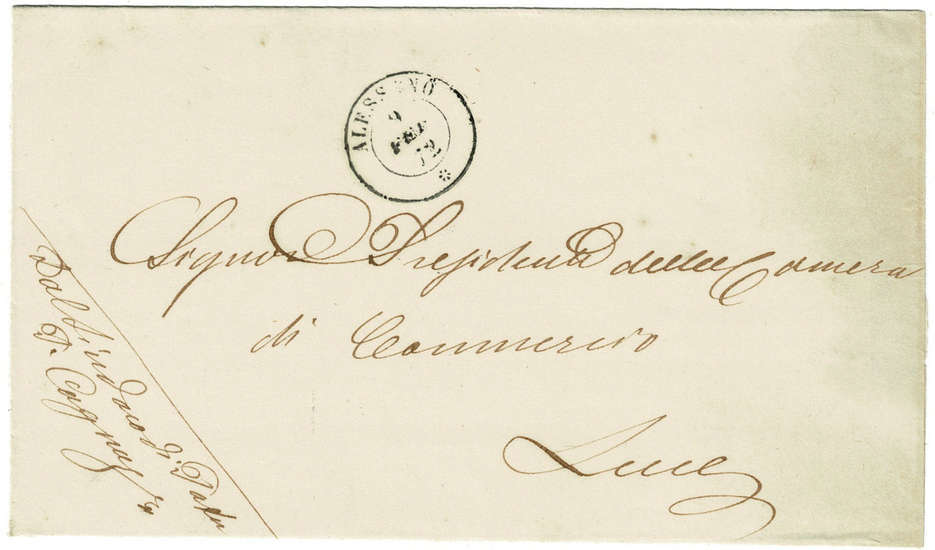 ALESSANO
9
FEB
72
Signor Presidente della Camera
di Commercio
Lecce
Dal Sindaco di Patù